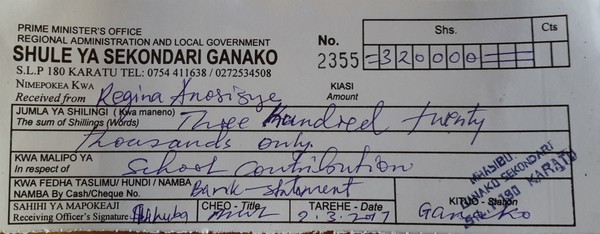 PRIME MINISTER'S OFFICE
REGIONAL ADMINISTRATION AND LOCAL GOVERNMENT
SHULE YA SEKONDARI GANAKO
S.L.P 180 KARATU TEL: 0754 411638 / 0272534508
No. 2355
Shs. Cts
=320000=
NIMEPOKEA KWA
Received from Regina
KIASI
Amount
JUMLA YA SHILINGI (Kwa maneno)
The sum of Shillings (Words) Three Hundred twenty
thousands only.
KWA MALIPO YA
In respect of School Contribution
KWA FEDHA TASLIMU/ HUNDI / NAMBA
NAMBA By Cash/Cheque No. Bank-statement
SAHIHI YA MAPOKEAJI
Receiving Officer's Signature
CHEO - Title
TAREHE - Date
2.3.2017
KITUO - Station
Ganako
MHASIBU
GANAKO SEKONDARI
KARATU